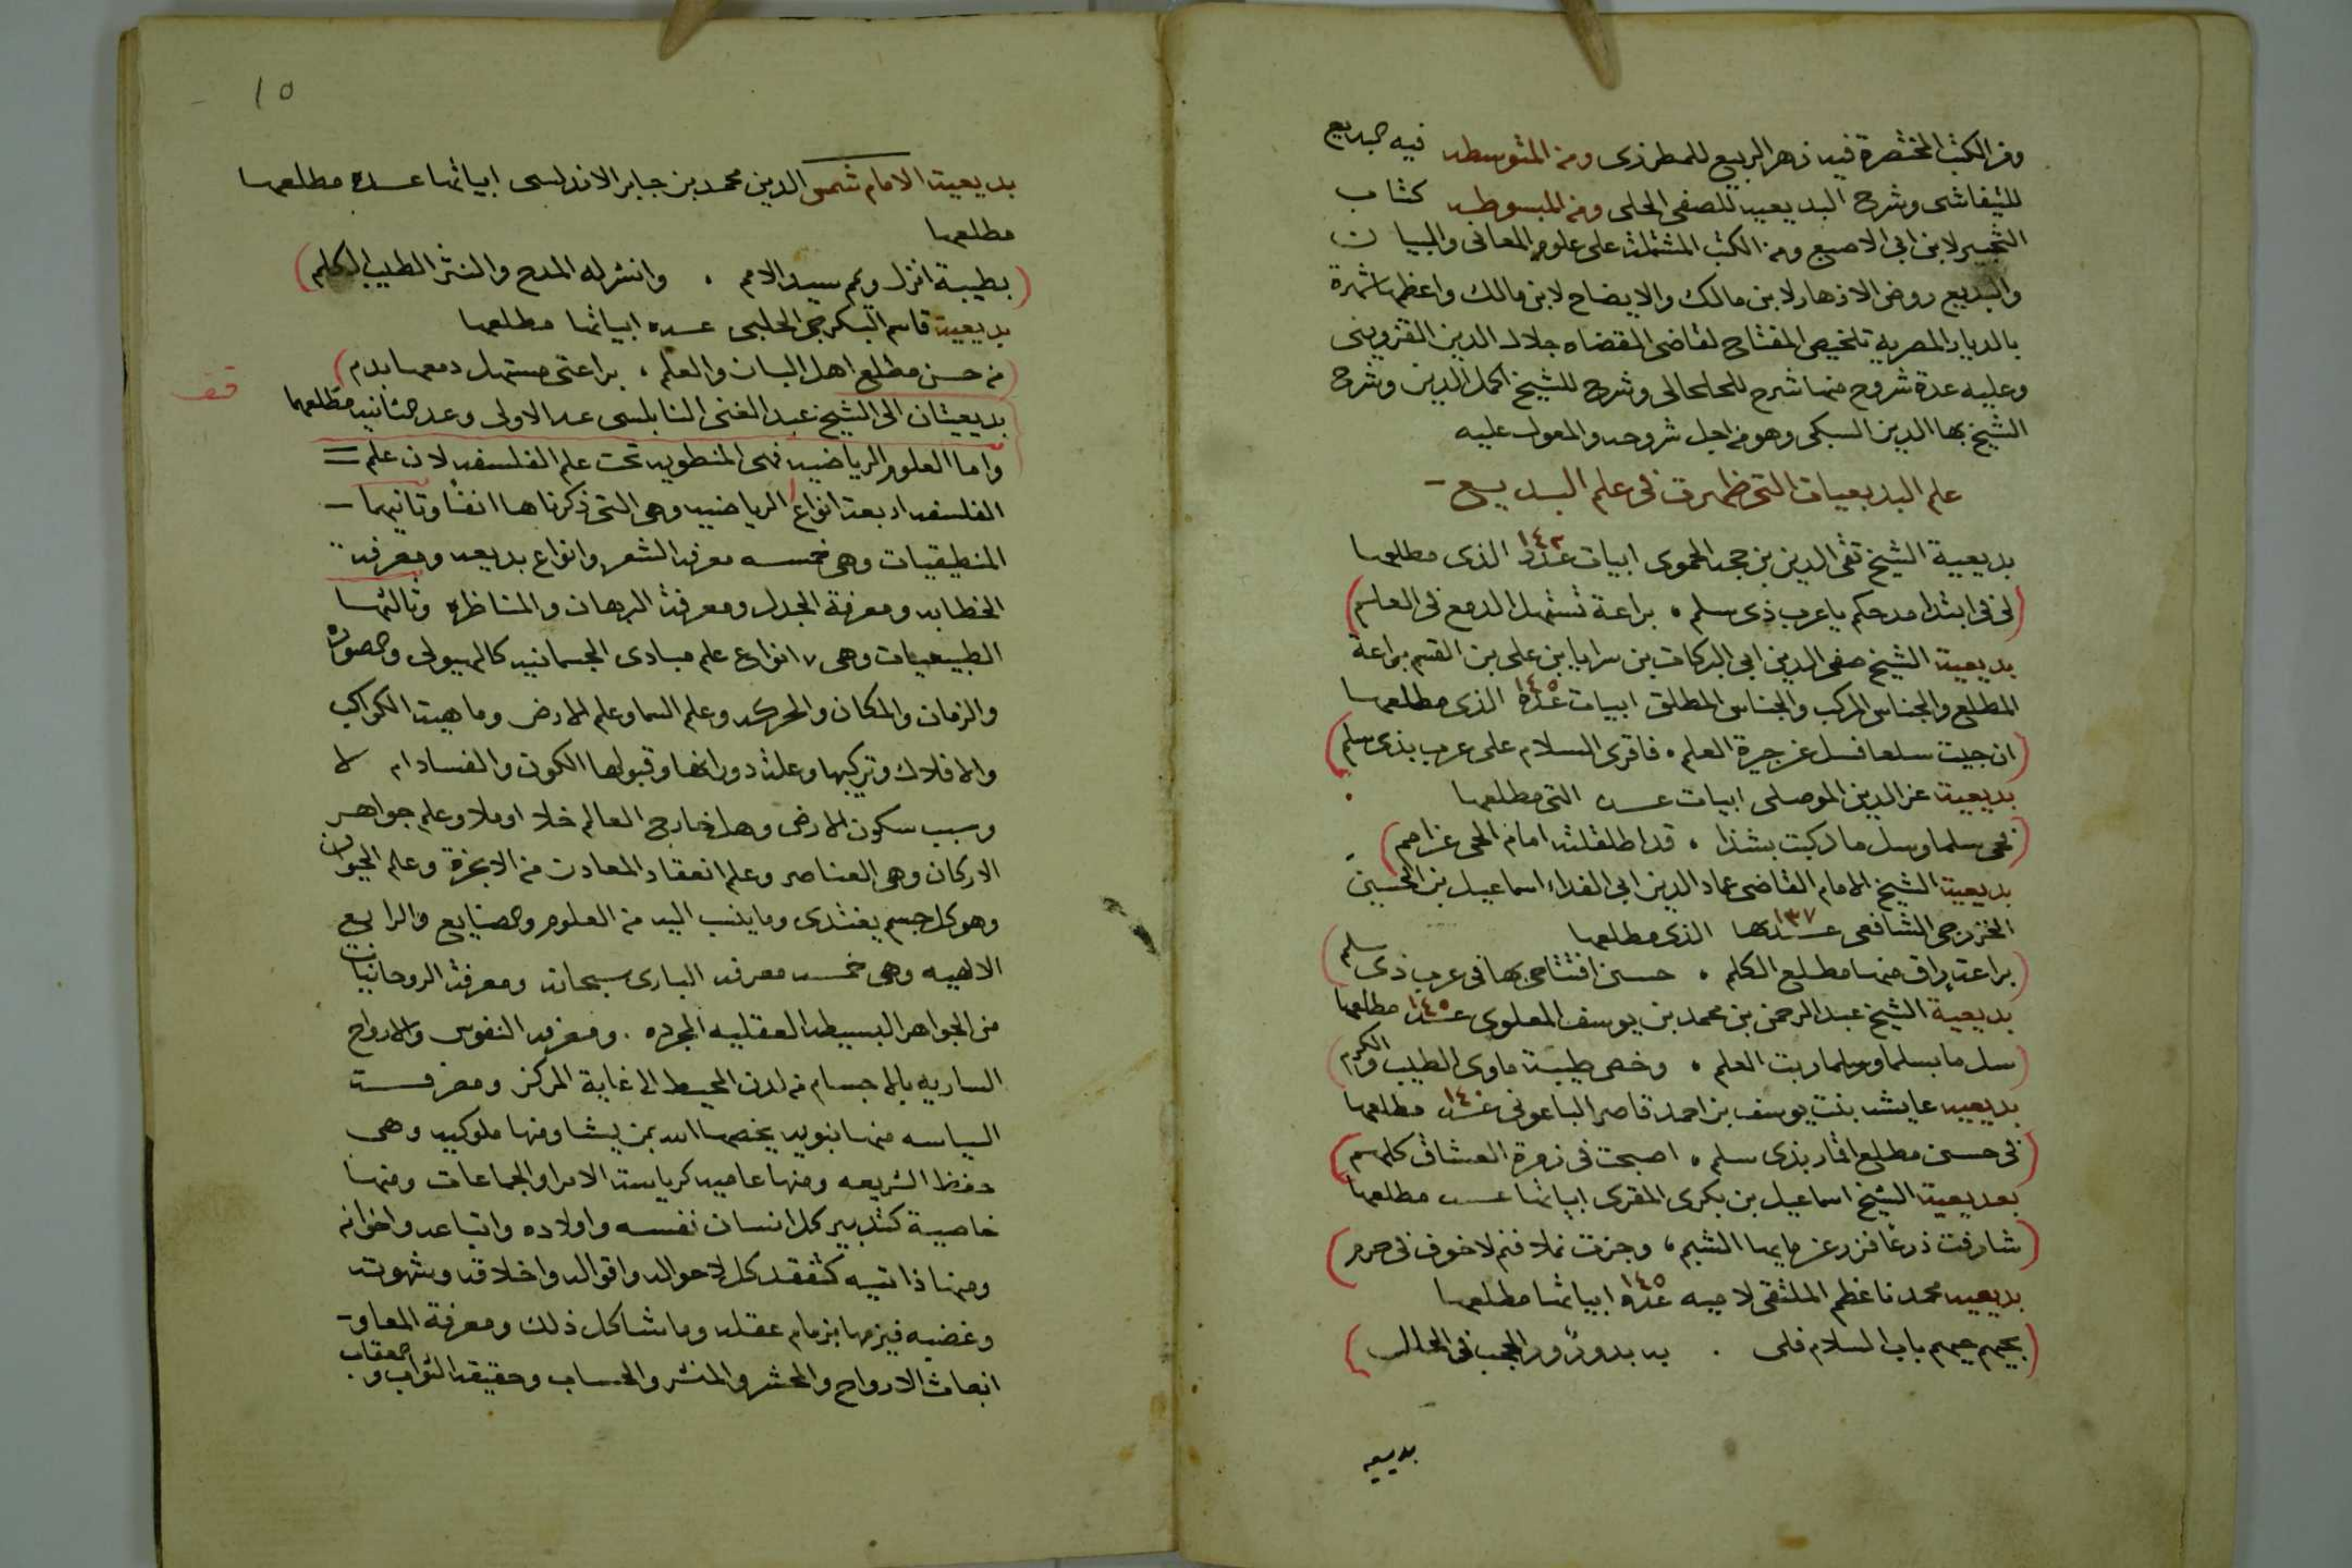 ومن الكتب المختصرة فيه زهر الربيع للمطرزى ومن المتوسطه فيه البديع
للتيفاشى وشرح البديعيه للصفى الحلى ومن المبسوطه كتاب
التحبير لابن ابى الاصبع ومن الكتب المشتملة على علوم المعانى والبيان
والبديع روض الازهار لابن مالك والايضاح لابن مالك واعظمها شهرة
بالديار المصرية تلخيص المفتاح لقاضى القضاه جلال الدين القزوينى
وعليه عدة شروح منها شرح للخلخالى وشرح للشيخ اكمل الدين وشرح
الشيخ بها الدين السبكى وهو من اجل شروحه والمعول عليه
علم البديعيات التى ظهرت فى علم البديع
بديعية الشيخ تقى الدين بن حجه الحموى ابيات عدد ١٤٢ الذى مطلعها
(لى فى ابتدا مدحكم ياعرب ذى سلم ٠ براعة تستهل الدمع فى العلم)
بديعية الشيخ صفى الدين ابى البركات بن سرايا بن على بن القسم براعة
المطلع والجناس المركب والجناس المطلق ابيات عده ١٤٥ الذى مطلعها
(ان جيت سلعا فسل عن جيرة العلم ٠ فاقرى السلام على عرب بذى سلم)
بديعية عز الدين الموصلى ابيات عده التى مطلعها
(نحى سلما وسل ما ركبت بشذا ٠ قد اطلقلته امام الحى عن امم)
بديعية الشيخ الامام القاضى عماد الدين ابى الفداء اسماعيل بن الحسين
الخزرجى الشافعى عددها ١٣٧ الذى مطلعها
(براعة راق منها مطلع الكلم ٠ حسن افتتاحى بها فى عرب ذى سلم)
بديعية الشيخ عبد الرحمن بن محمد بن يوسف المعلوى عده ١٤٥ مطلعها
(سل ما بسلما وسلما ربت العلم ٠ وخص طيبة ماوى الطيب والكرم)
بديعيه عايشه بنت يوسف بن احمد ناصر الباعونى عده ١٤٠ مطلعها
(فى حسن مطلع اقمار بذى سلم ٠ اصبحت فى زمرة العشاق كلهم)
بعديعية الشيخ اسماعيل بن بكرى المقرى ابياتها عده مطلعها
(شارفت ذرعا فزر عن مايها الشبم ، وجزت نملا فنم لا خوف فى حرم)
بديعيه محمد ناظم الملتقى لاميه عده ١٤٥ ابياتها مطلعها
(بحيهم حيهم باب السلام فلى ٠ به بدور الحجب فى الحلل)
بديعيه
١٥
بديعية الامام شمس الدين محمد بن جابر الاندلسى ابياتها عده مطلعها
مطلعها
(بطيبة انزل ويمم سيد الامم ٠ وانشر له المدح والنثر الطيب الكلم)
بديعية قاسم البكرجى الحلبى عده ابياتها مطلعها
(من حسن مطلع اهل البان والعلم ، براعتى مستهل دمعها بدم)
بديعيتان الى الشيخ عبد الغنى النابلسى عد الاولى وعد الثانيه مطلعها
قف
واما العلوم الرياضيه فهى المنطويه تحت علم الفلسفه لان علم
الفلسفه اربعة انواع الرياضيه وهى التى ذكرناها انفا وثانيها
المنطيقيات وهى خمسه معرفه الشعر وانواع بديعه ومعرفة
الخطابه ومعرفة الجدل ومعرفة البرهان والمناظره وثالثها
الطبيعيات وهى ٧ انواع علم مبادى الجسمانيه كالهيولى والصوره
والزمان والمكان والحركه وعلم السما وعلم الارض وماهيت الكواكب
والافلاك وتركيبها وعلة دورانها وقبولها الكون والفساد ام لا
وسبب سكون الارض وهل خارج العالم خلا او ملا وعلم جواهر
الاركان وهى العناصر وعلم انعقاد المعادن من الابخرة وعلم الحيوان
وهو كل جسم يغتدى وما ينسب اليه من العلوم والصنايع والرابع
الالهيه وهى خمسه معرفه البارى سبحانه ومعرفة الروحانيات
من الجواهر البسيطه العقليه المجرده ٠ ومعرفه النفوس والارواح
الساريه بالاجسام من لدن المحيط الى غاية المركز ومعرفت
السياسه منها نبويه يخصها الله بمن يشا ومنها ملوكيه وهى
حفظ الشريعه ومنها عاميه كرياسة الامرا والجماعات ومنها
خاصية كتدبير كل انسان نفسه واولاده واتباعه واخوانه
ومنها ذاتيه كتفقد كل لاحواله واقواله واخلاقه وشهوته
وغضبه فيزمها بزمام عقله وماشاكل ذلك ومعرفة المعاد
انبعاث الارواح والحشر والمنشر والحساب وحقيقة الثواب والعقاب